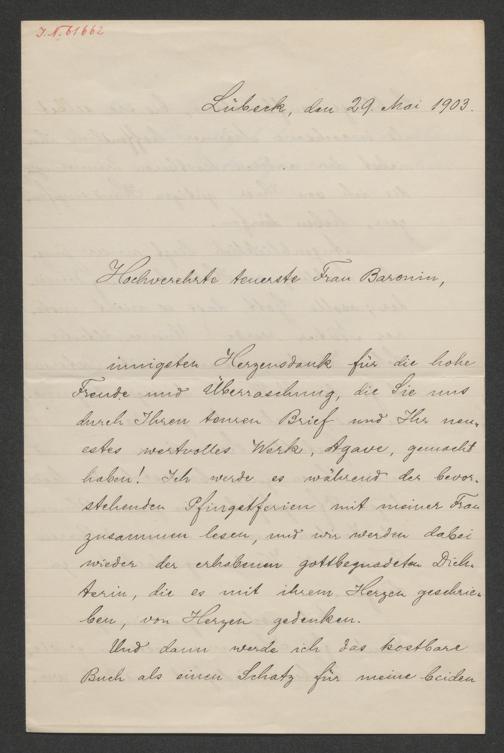 J. N. 61662
Lübeck, den 29. Mai 1903.
Hochverehrte teuerste Frau Baronin,
innigsten Herzensdank für die hohe
Freude und Überraschung, die Sie uns
durch Ihren teuren Brief und Ihr neu-
estes wertvolles Werk, Agave, gemacht
haben! Ich werde es während der bevor-
stehenden Pfingstferien mit meiner Frau
zusammen lesen, und wir werden dabei
wieder der erhabenen gottbegnadeten Dich-
terin, die es mit ihrem Herzen geschrie-
ben, von Herzen gedenken.
Und dann werde ich das kostbare
Buch als einen Schatz für meine beiden